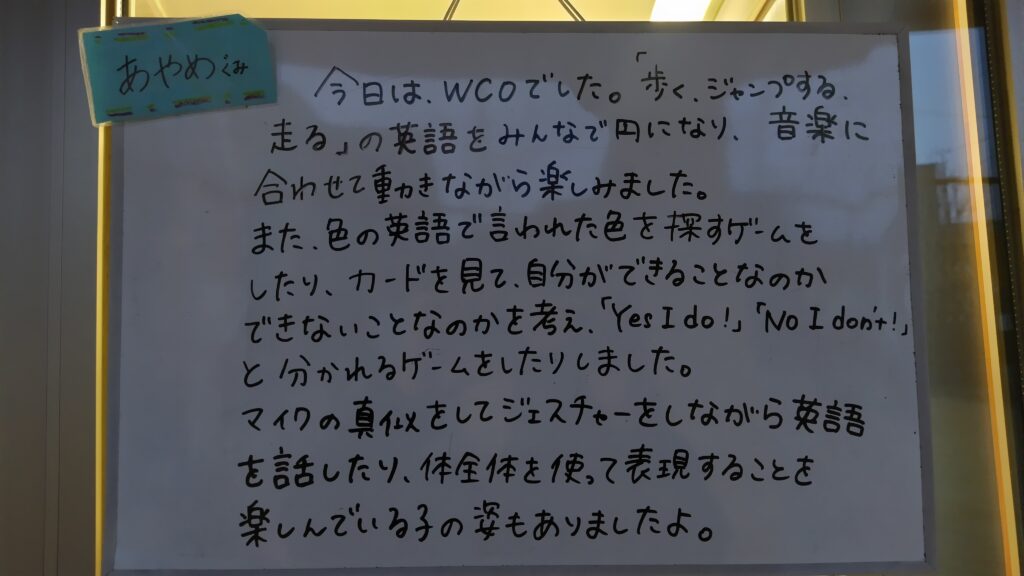 あやめぐみ
今日は、WCOでした。「歩く、ジャンプする、
走る」の英語をみんなで円になり、音楽に
合わせて動きながら楽しみました。
また、色の英語で言われた色を探すゲームを
したり、カードを見て、自分ができることなのか
できないことなのかを考え、「Yes I do!」「No I don't!」
と分かれるゲームをしたりしました。
マイクの真似をしてジェスチャーをしながら英語
を話したり、体全体を使って表現することを
楽しんでいる子の姿もありましたよ。